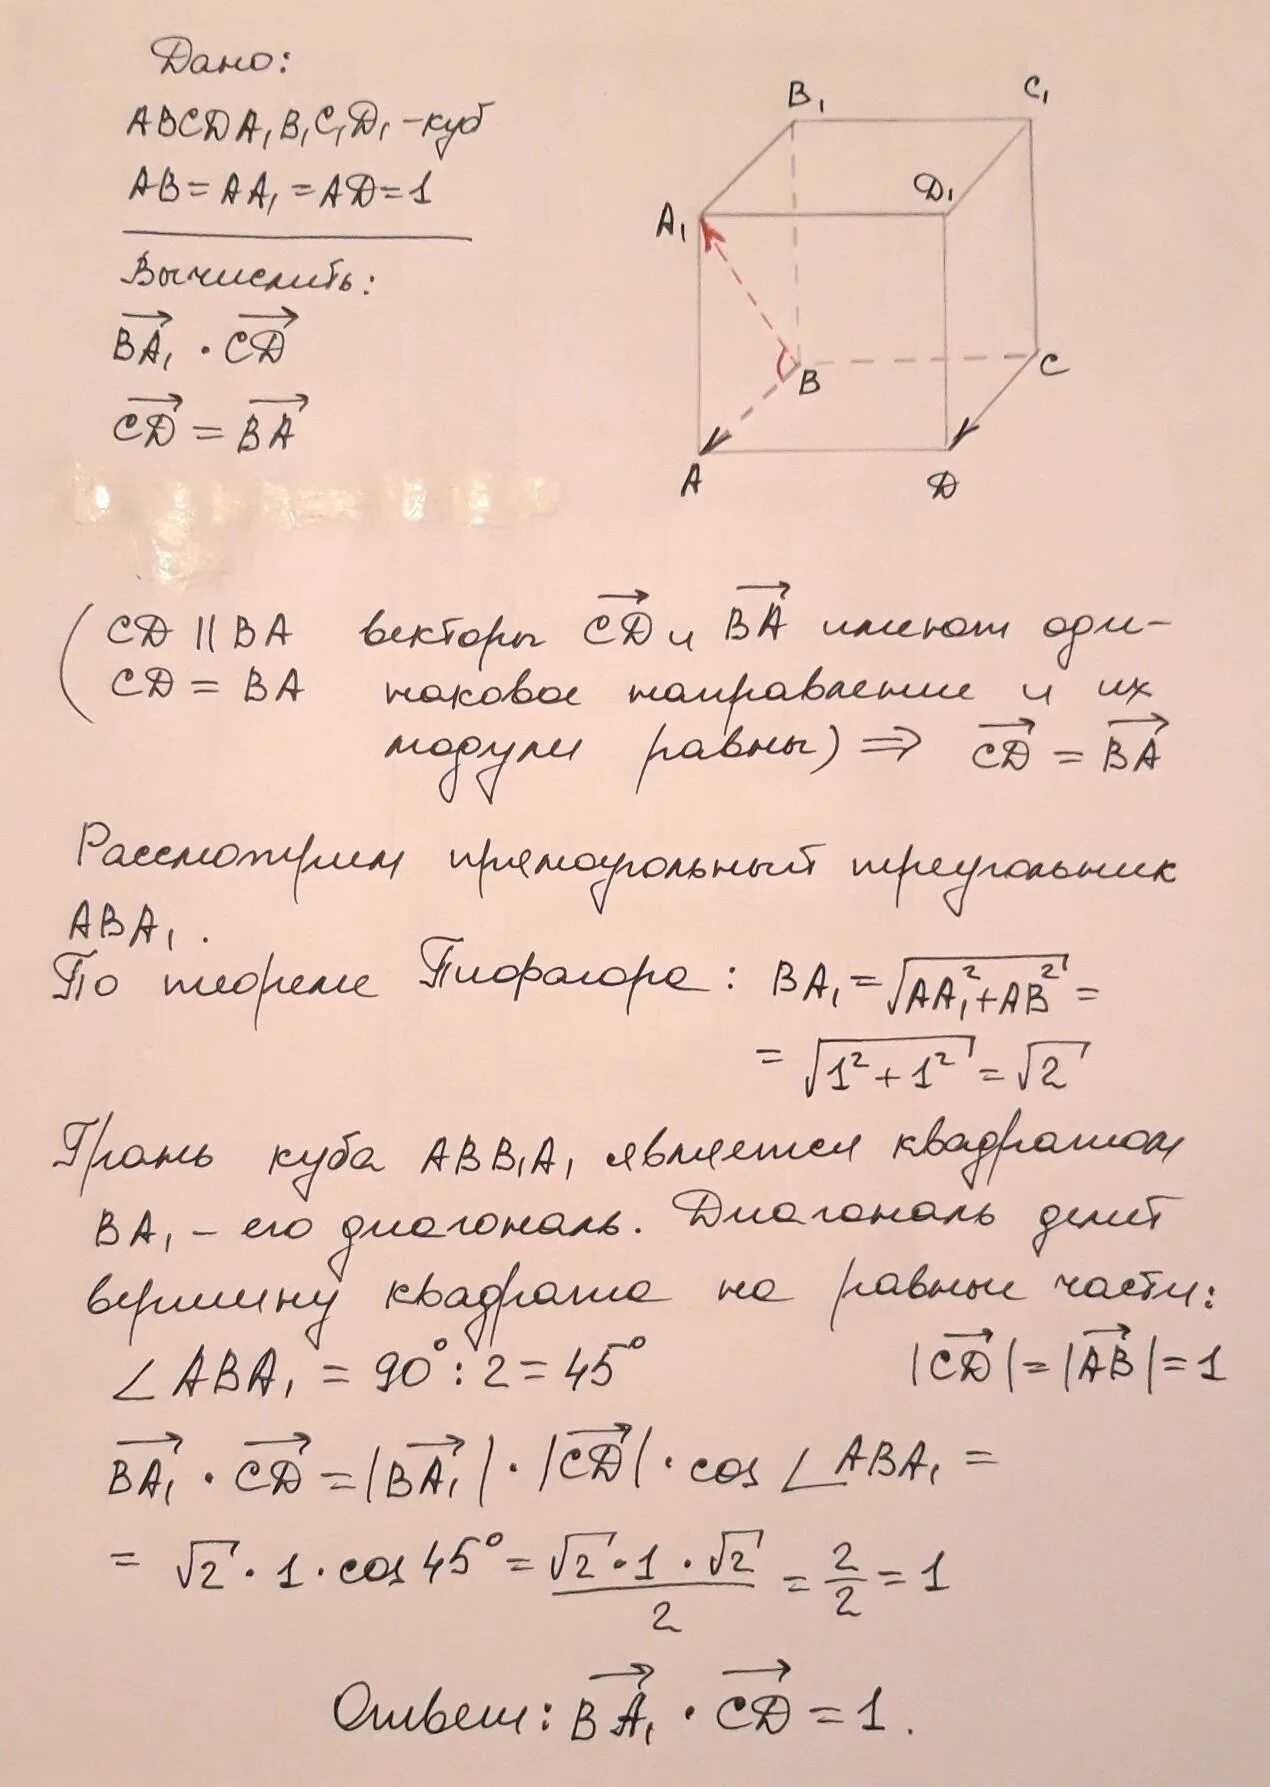 Дано:
ABCDA₁B₁C₁D₁ - куб
AB = AA₁ = AD = 1
Вычислить:
BA₁ · CD
CD = BA
B₁
C₁
D₁
A₁
B
C
A
D
( CD || BA векторы CD и BA имеют оди-
CD = BA наковое направление и их
модули равны) ⇒ CD = BA
Рассмотрим прямоугольный треугольник
ABA₁.
По теореме Пифагора: BA₁ = √(AA₁² + AB²) =
= √(1² + 1²) = √2
Грань куба ABB₁A₁ является квадратом
BA₁ - его диагональ. Диагональ делит
вершину квадрата на равные части:
∠ABA₁ = 90° : 2 = 45° |CD| = |AB| = 1
BA₁ · CD = |BA₁| · |CD| · cos ∠ABA₁ =
= √2 · 1 · cos 45° = √2 · 1 · √2 / 2 = 2/2 = 1
Ответ: BA₁ · CD = 1.